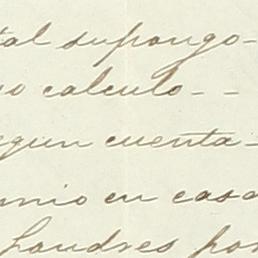 tal supongo-
o calculo--
egun cuenta-
unio en casa
Londres por